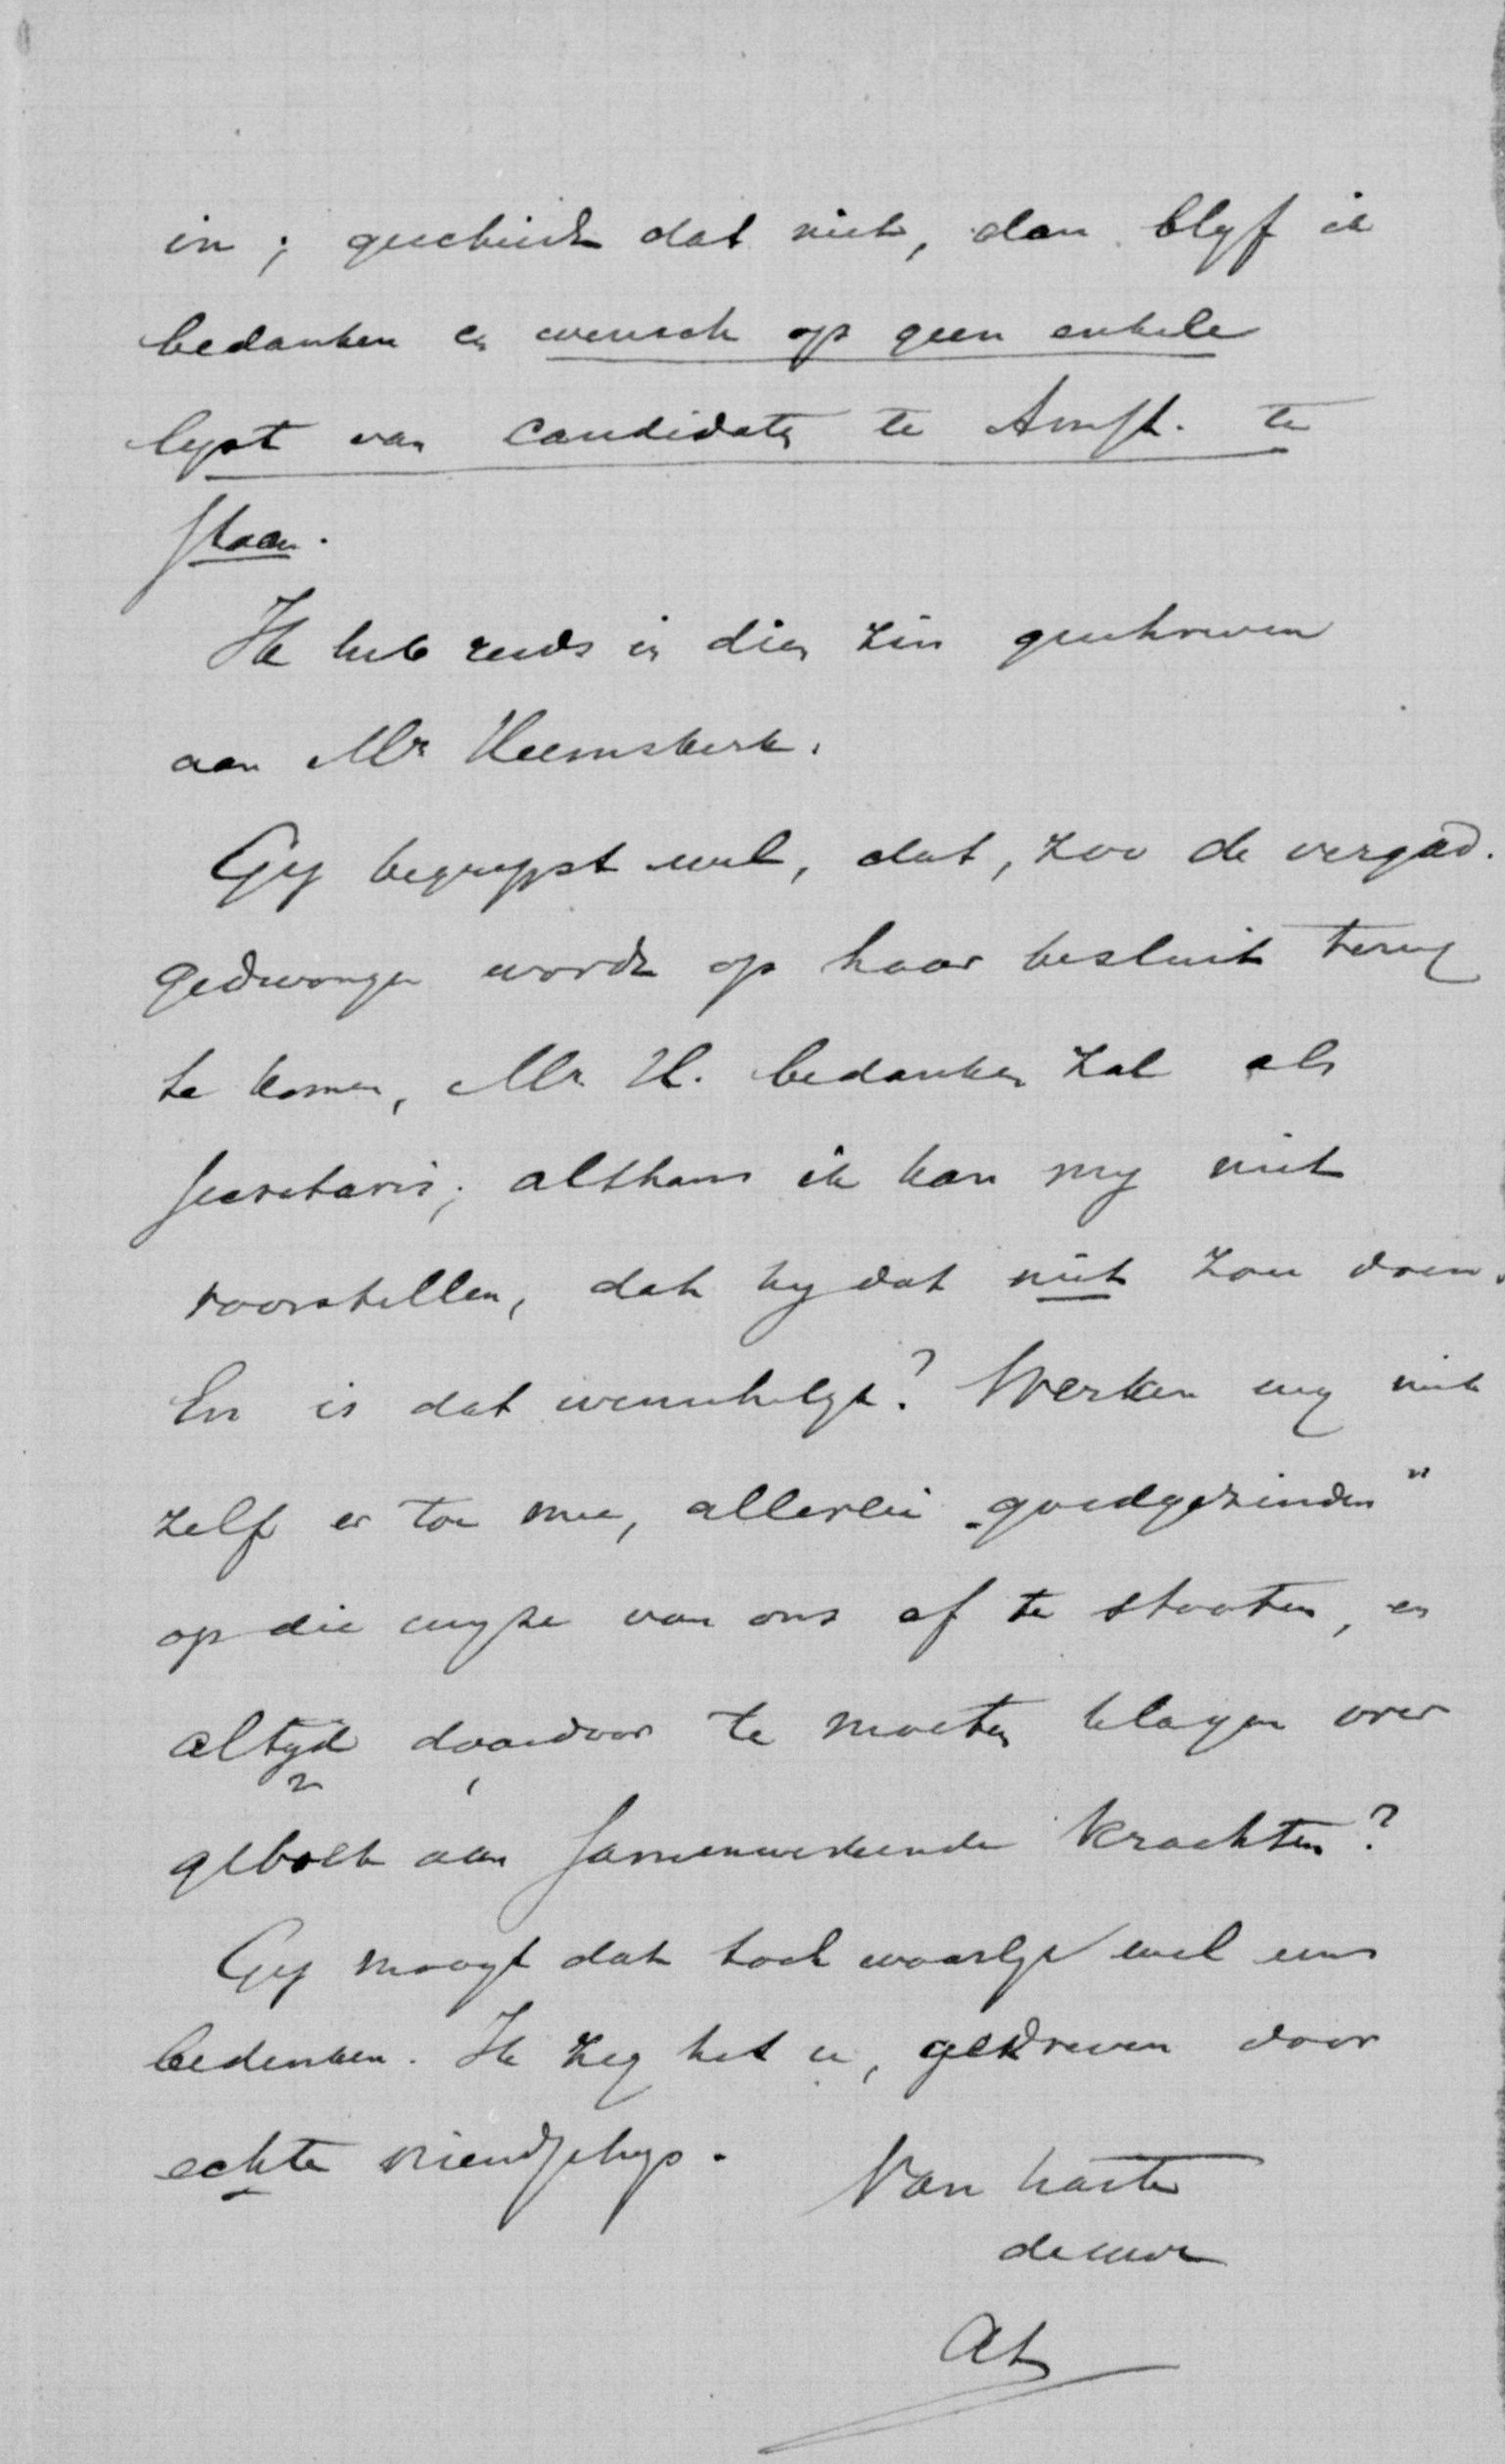 in; geschiedt dat niet, dan blyf ik
bedanken en wensch op geen enkele
lyst van candidaten te Amst. te
staan.
Ik heb reeds in dien zin geschreven
aan Mr Heemskerk.
Gy begrypst wel, dat, zoo de vergad.
gedwongen wordt op haar besluit terug
te komen, Mr H. bedanken zal als
secretaris; althans ik kan my niet
voorstellen, dat hy dat niet zou doen.
En is dat wenschelyk? Werken wy niet
zelf er toe mee, allerlei „goedgezinden"
op die wyze van ons af te stooten, en
altyd daardoor te moeten klagen over
gebrek aan samenwerkende krachten?
Gy moogt dat toch waarlyk wel eens
bedenken. Ik zeg het u, gedreven door
echte vriendschap.
Van harte
de uwe